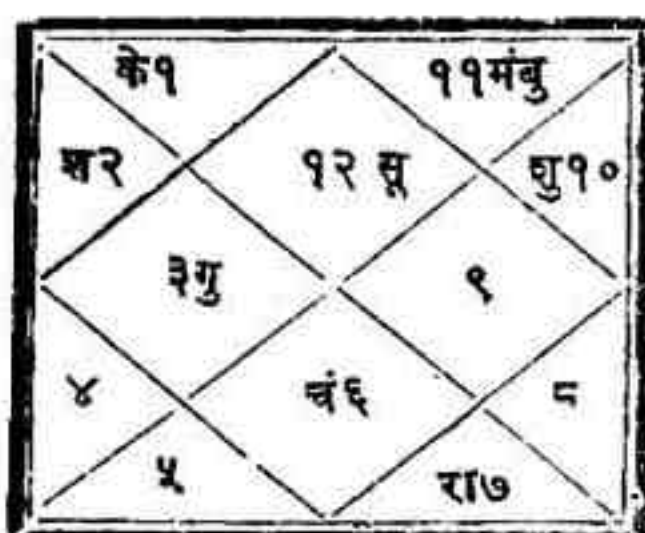 के१ ११मंबु
श२ १२ सू शु१०
३गु ९
४ चं६ ८
५ रा७